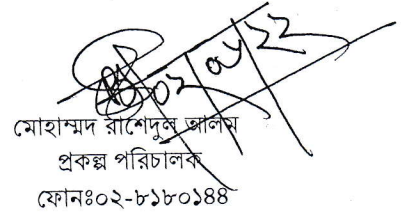 ০২/০৮/২২
মোহাম্মদ রাশেদুল আলম
প্রকল্প পরিচালক
ফোনঃ০২-৮১৮০১৪৪